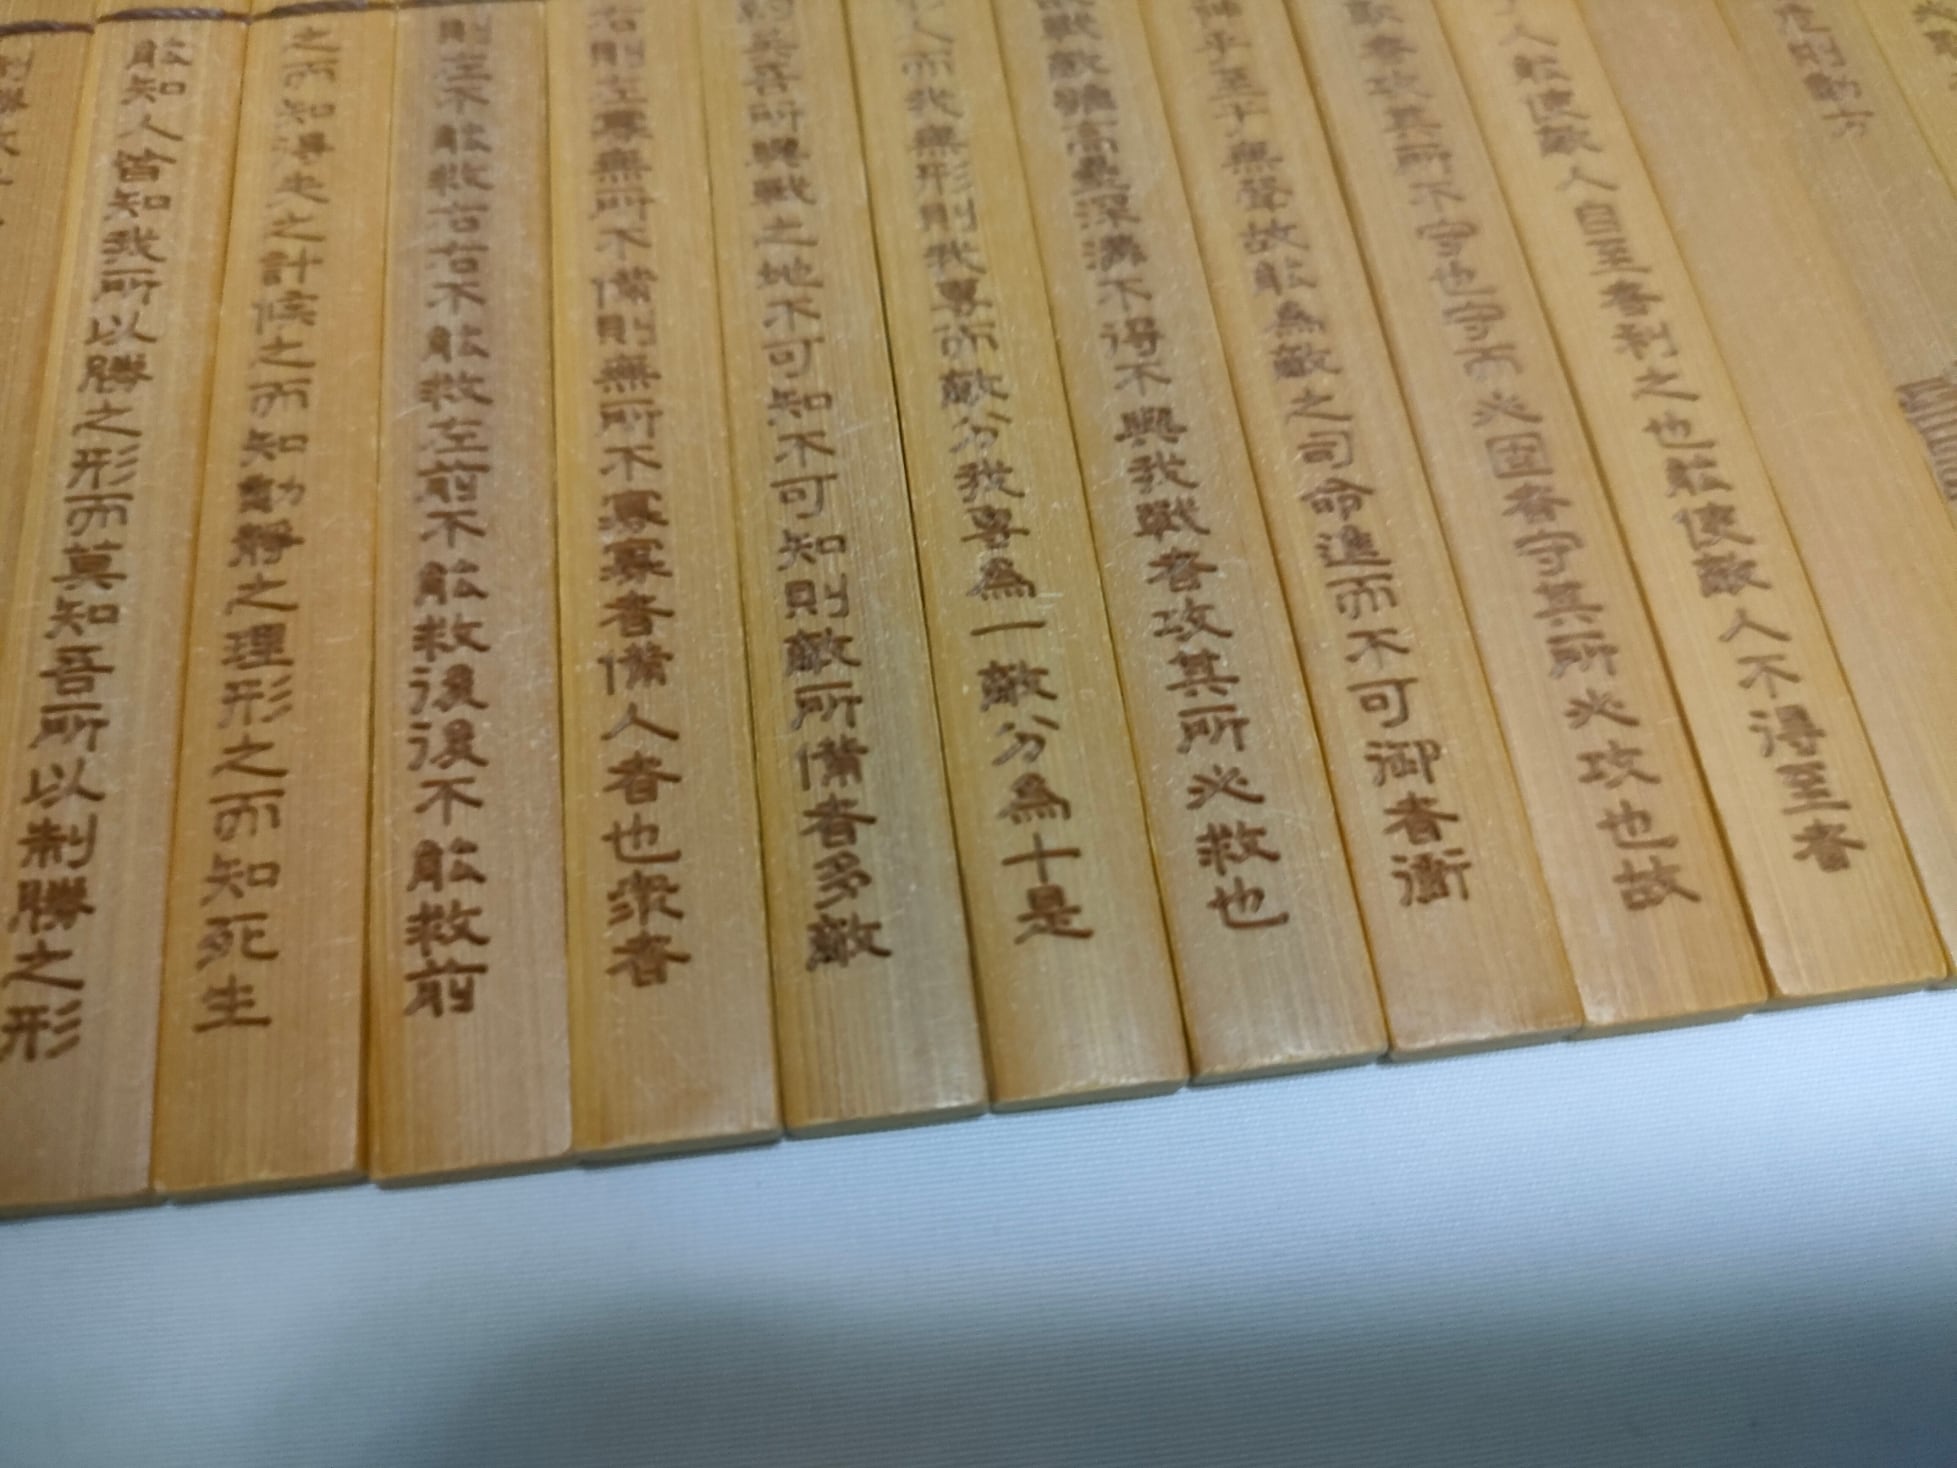 危則動方
人能使敵人自至者利之也能使敵人不得至者
者攻其所不守也守而必固者守其所必攻也故
神乎至于無聲故能為敵之司命進而不可御者衝
戰敵雖高壘深溝不得不與我戰者攻其所必救也
人而我無形則我專而敵分我專為一敵分為十是
矣吾所與戰之地不可知不可知則敵所備者多敵
右則左寡無所不備則無所不寡寡者備人者也衆者
則左不能救右右不能救左前不能救後後不能救前
之而知得失之計候之而知動靜之理形之而知死生
能知人皆知我所以勝之形而莫知吾所以制勝之形